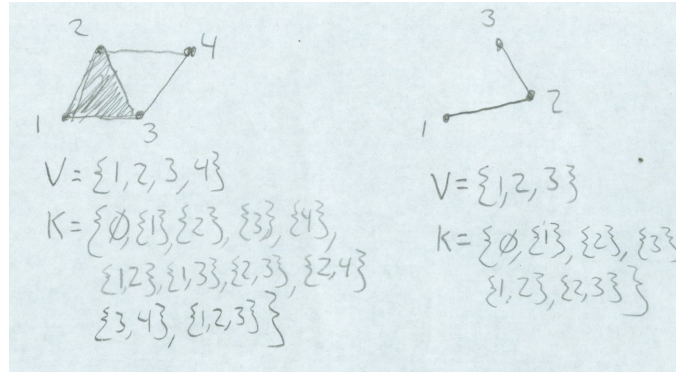 2
4
1
3
V = {1, 2, 3, 4}
K = {∅, {1}, {2}, {3}, {4},
{1,2}, {1,3}, {2,3}, {2,4}
{3,4}, {1,2,3}}
3
2
1
V = {1, 2, 3}
K = {∅, {1}, {2}, {3}
{1,2}, {2,3}}